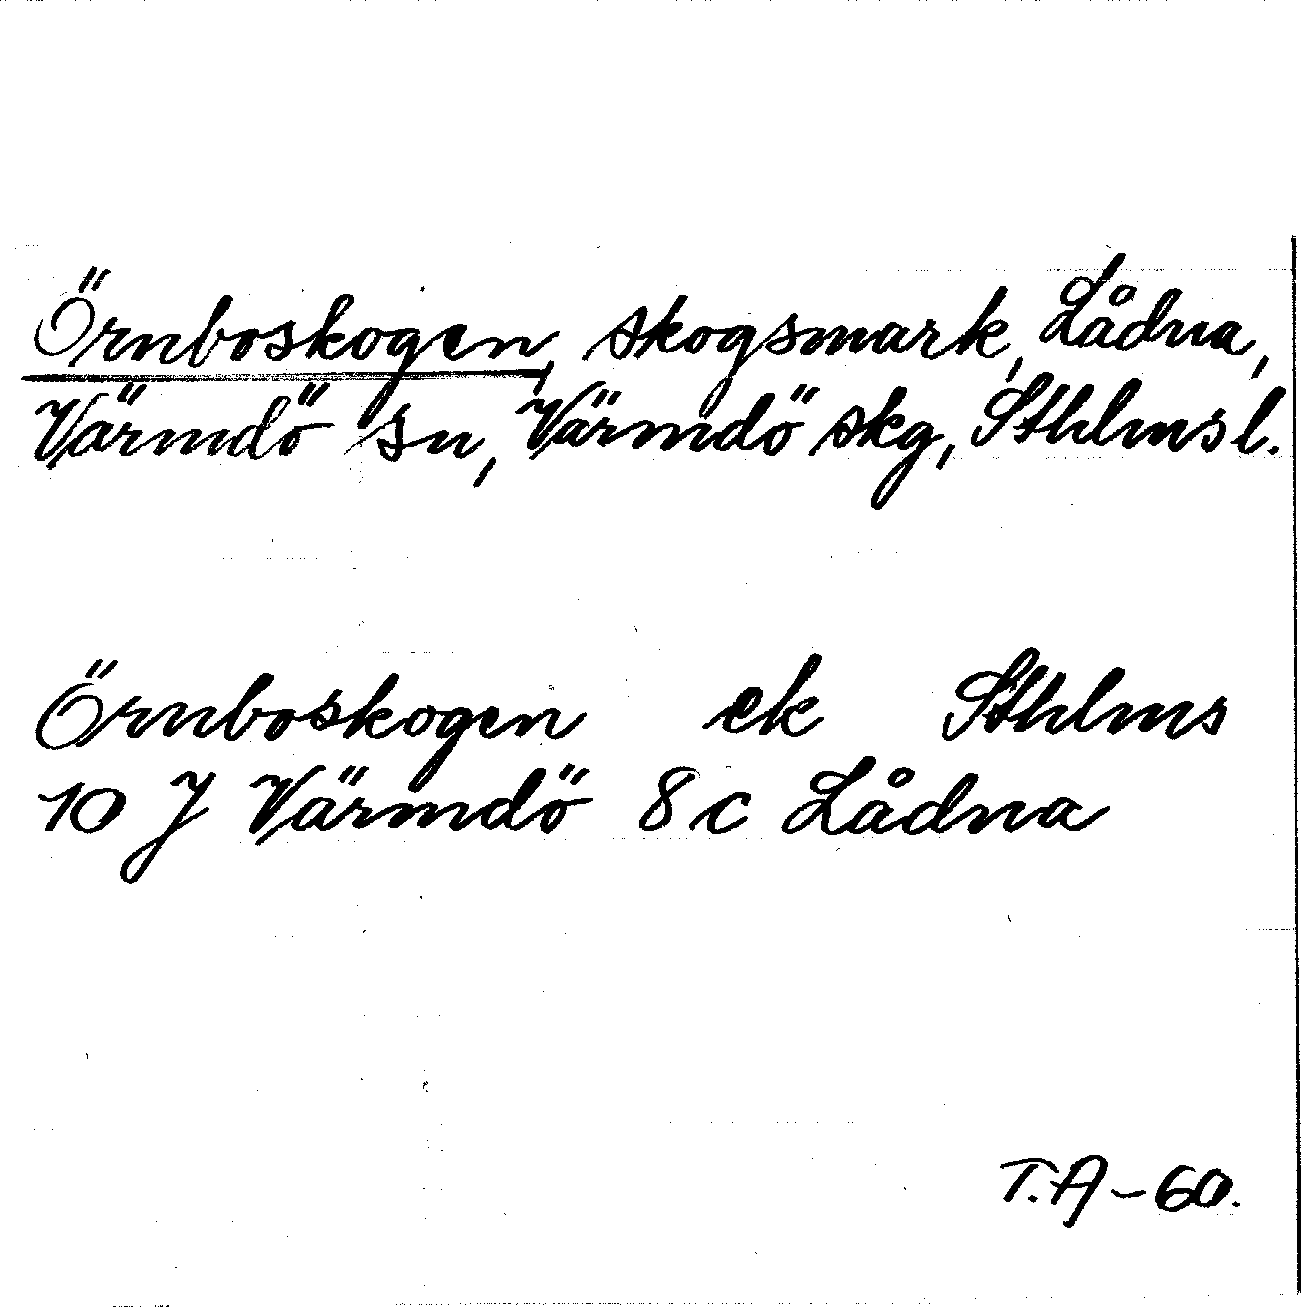 Örnboskogen, skogsmark, Lådna,
Värmdö sn, Värmdö skg, Sthlms l.
Örnboskogen ek Sthlms
10 J Värmdö 8c Lådna
T.A-60.